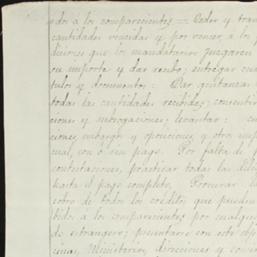 dos á los comparecientes = Ceder y tran
cantidades recibidas y por vencer, á los
deudores que los mandatarios juzgaren
su importe y dar recibo; entregar cua
tulos y documentos: Dar garantias
todas las cantidades recibidas; consentir
ciones y subrogaciones; levantar:
ciones, embargos y oposiciones y otros imp
cual, con ó sin pago. Por falta de p
contestaciones, practicar todas las dili
hasta el pago completo. Procurar
cobro de todos los creditos que puedan
bido á los comparecientes por cualquier
de estrangero; presentarse con este obje
cinas, Ministerios, direcciones y